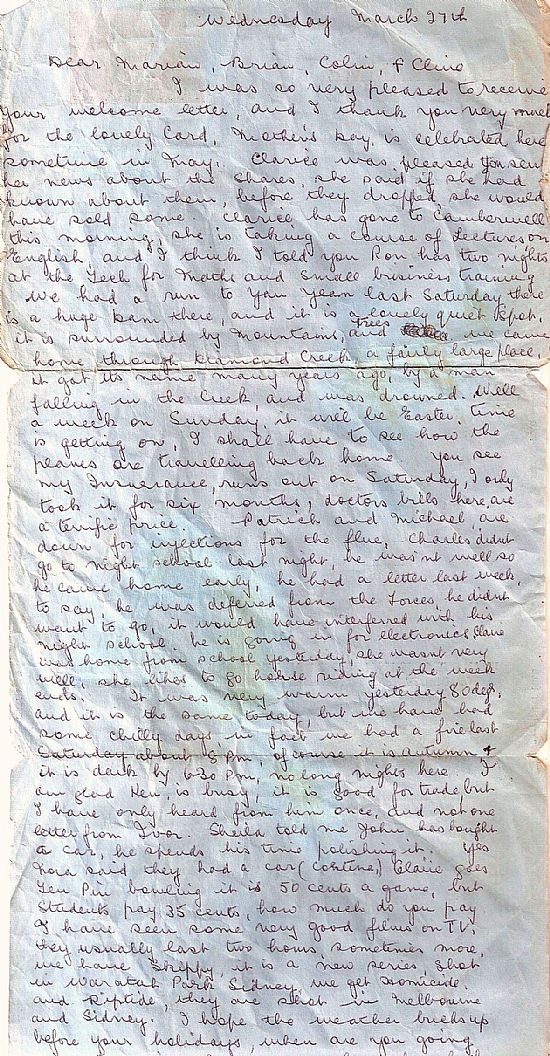 Wednesday March 27th
Dear Marian, Brian, Colin, & Clive
I was so very pleased to receive
your welcome letter, and I thank you very much
for the lovely Card, Mother's Day, is celebrated here
sometime in May. Clarice was pleased you sent
her news about the Shares, she said if she had
known about them, before they dropped, she would
have sold some. Clarice has gone to Camberwell
this morning, she is taking a course of Lectures on
English and I think I told you Ron has two nights
at the Tech for Maths and small business training.
We had a run to Yan Yean last Saturday, there
is a huge Dam there, and it is a lovely quiet spot.
it is surrounded by Mountains, and trees we came
home through Diamond Creek a fairly large place,
it got its name many years ago, by a man
falling in the Creek, and was drowned. Well
a week on Sunday, it will be Easter. time
is getting on, I shall have to see how the
planes are travelling back home you see
my Insurance, runs out on Saturday, I only
took it for six months, doctors bills here, are
a terrific price. Patrick and Michael, are
down for injections for the flue, Charles didnt
go to night school last night, he wasnt well so
he came home early, he had a letter last week,
to say he was deferred from the Forces, he didnt
want to go, it would have interferred with his
night school. he is going in for electronics Claire
was home from school yesterday, she wasnt very
well, she likes to go horse riding at the week
ends. It was very warm yesterday 80 deg,
and it is the same today, but we have had
some chilly days in fact we had a fire last
Saturday about 8 pm, of course it is autumn &
it is dark by 6-30 Pm, no long nights here. I
am glad Ken is busy, it is good for trade but
I have only heard from him once, and not one
letter from Ivor. Sheila told me John has bought
a car, he spends his time polishing it. Yes
Nora said they had a car (Cortina,) Claire goes
Ten Pin bowling it is 50 cents a game, but
Students pay 35 cents, how much do you pay
I have seen some very good films on TV.
they usually last two hours, sometimes more,
we have Skippy, it is a new series shot
in Waratah Park Sidney, we get Homicide.
and Riptide, they are shot in Melbourne
and Sidney. I hope the weather bucks up
before your holidays, when are you going,